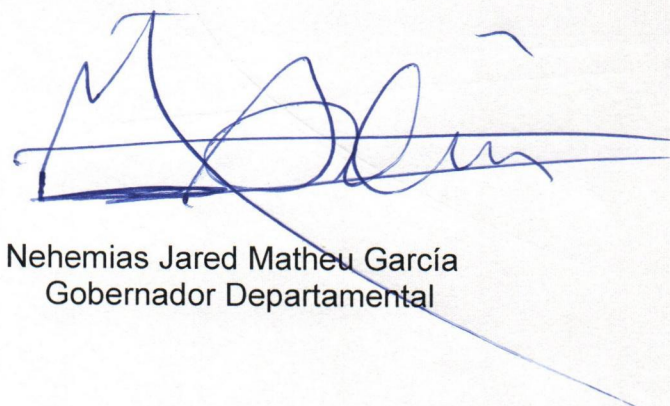 Nehemias Jared Matheu García
Gobernador Departamental